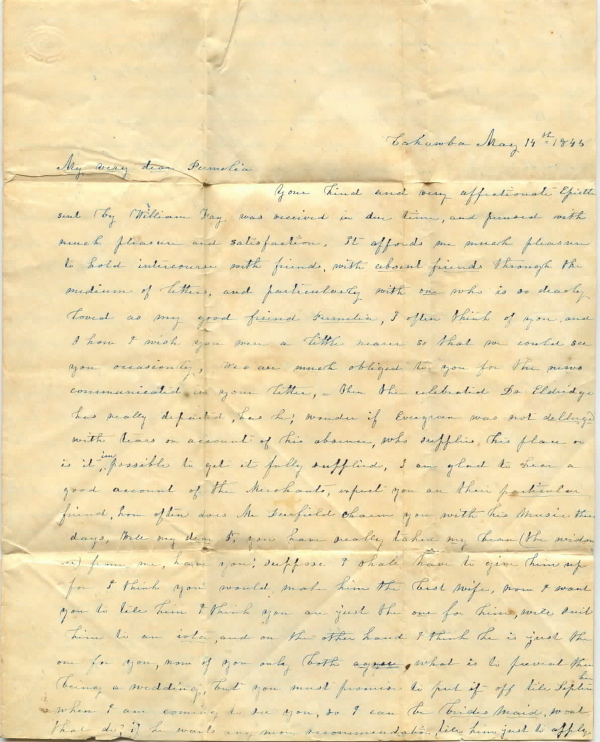 Cahawba May 14th 1846
My very dear Permelia
Your kind and very affectionate Epistle
sent by William Fay was received in due time, and perused with
much pleasure and satisfaction. It affords me much pleasure
to hold intercourse with friends, with absent friends through the
medium of letters, and particularly with one who is so dearly
loved as my good friend Permelia, I often think of you and
O how I wish you were a little nearer so that we could see
you occasionly, We are much obliged to you for the news
communicated in your letter, - then the celebrated Dr Eldridge
has really departed, has he; wonder if Evergreen was not deluged
with tears on account of his absence, who supplies his place or
is it impossible to get it fully supplied, I am glad to hear a
good account of the Merchants, expect you are their particular
friend, how often does Mr Deerfield charm you with his Music these
days, Well my dear P, you have really taken my beau (the widow
er) from me, have you; suppose I shall have to give him up
for I think you would make him the best wife, now I want
you to tell him I think you are just the one for him, will suit
him to an iota, and on the other hand I think he is just the
one for you, now if you only both agree, what is to prevent there
being a wedding, but you must promise to put it off till Septem
when I am coming to see you, so I can be brides Maid, wont
that do; if he wants any more recommendation tell him just to apply